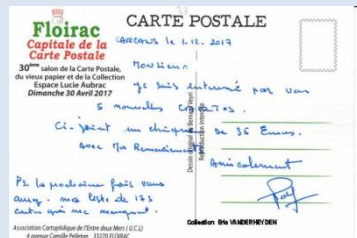 Floirac
Capitale de la
Carte Postale
30ème salon de la Carte Postale,
du vieux papier et de la Collection
Espace Lucie Aubrac
Dimanche 30 Avril 2017
CARTE POSTALE
CARCANS le 1.12.2017
Monsieur
je suis intéressé par vos
5 nouvelles CPARTOS.
Ci-joint un chèque de 35 Euros.
Avec Mes Remerciements
Amicalement
PS. la prochaine fois vous
aurez ma liste de 173
cartes qui me manquent.
Dessin original de Bernard Veyri
Reproduction interdite
Collection Eric VANDERHEYDEN
Association Cartophilique de l'Entre deux Mers (U.C.L)
4 avenue Camille Pelletan 33270 FLOIRAC